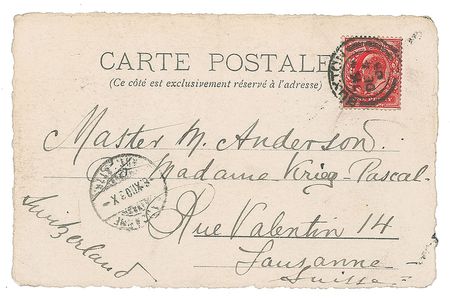 CARTE POSTALE
(Ce côté est exclusivement réservé à l'adresse)
Master M. Anderson.
Madame Krieg-Pascal.
Rue Valentin 14
Lausanne
Suisse
Switzerland